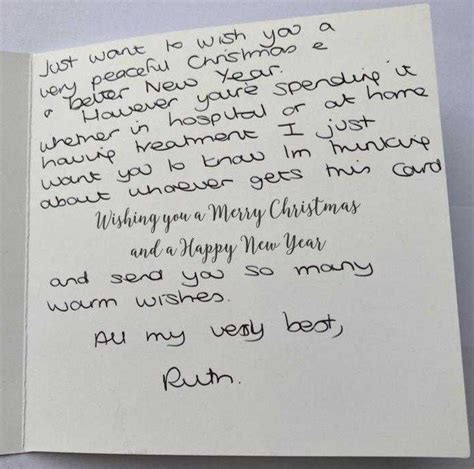 Just want to wish you a
very peaceful Christmas &
a better New Year.
However you're spending it
whether in hospital or at home
having treatment I just
want you to know Im thinking
about whoever gets this card
Wishing you a Merry Christmas
and a Happy New Year
and send you so many
warm wishes.
All my very best,
Ruth.